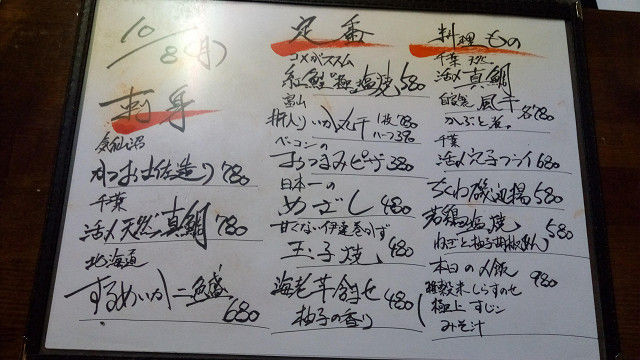 10/8(月)
刺身
気仙沼
かつお土佐造り 780
千葉
活〆天然真鯛 780
北海道
するめいか二色盛 680
定番
コメがススム
紅鮭"極"塩焼 580
富山
いか丸干 1枚780
ハーフ390
ベーコンの
おつまみピザ 380
日本一の
めざし 480
甘くない伊達巻かず
玉子焼 480
海老芋含ませ 480
柚子の香り
料理もの
千葉 天然
活〆真鯛
自家製 風干 各780
かぶと煮
千葉
活〆穴子フライ 680
ちくわ磯辺揚 580
若鶏塩焼 580
ねぎと柚子胡椒
本日の〆飯 980
雑穀米しらすのせ
極上すじこ
みそ汁